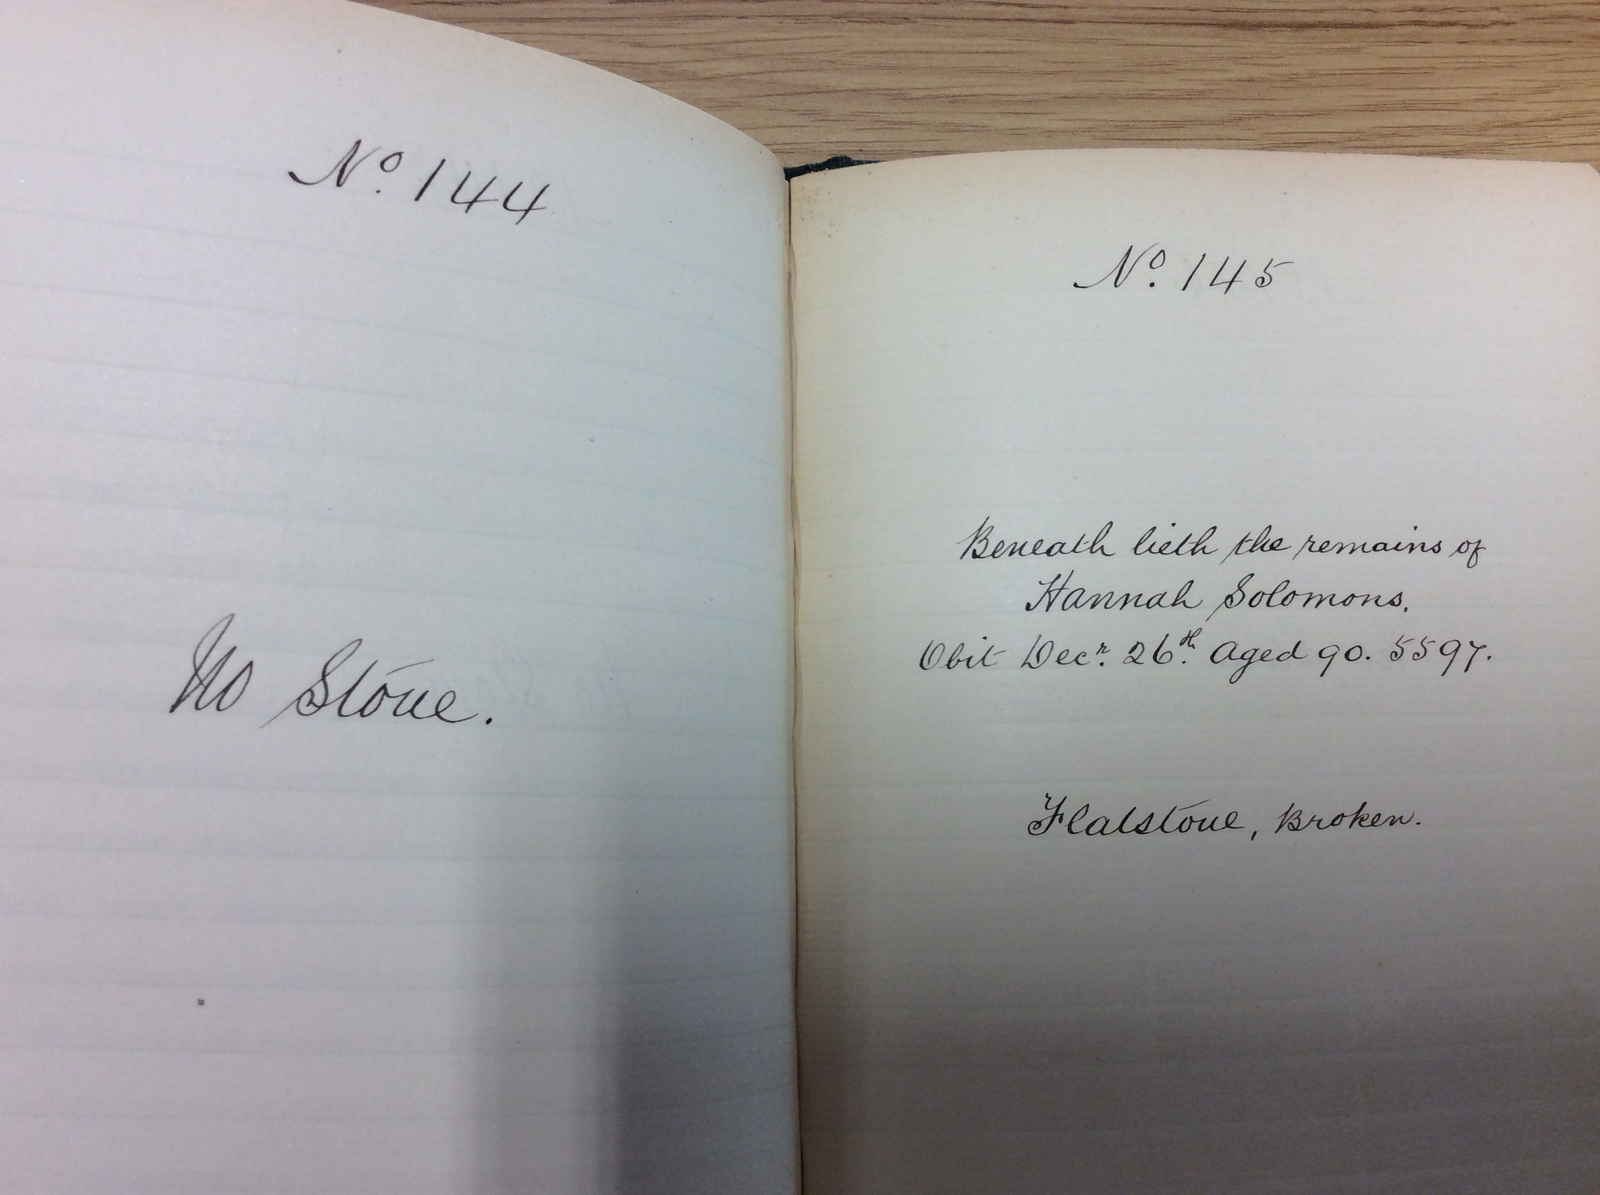 No. 144
No Stone.
No. 145
Beneath lieth the remains of
Hannah Solomons.
Obit Decr. 26th. Aged 90. 5597.
Flatstone, Broken.